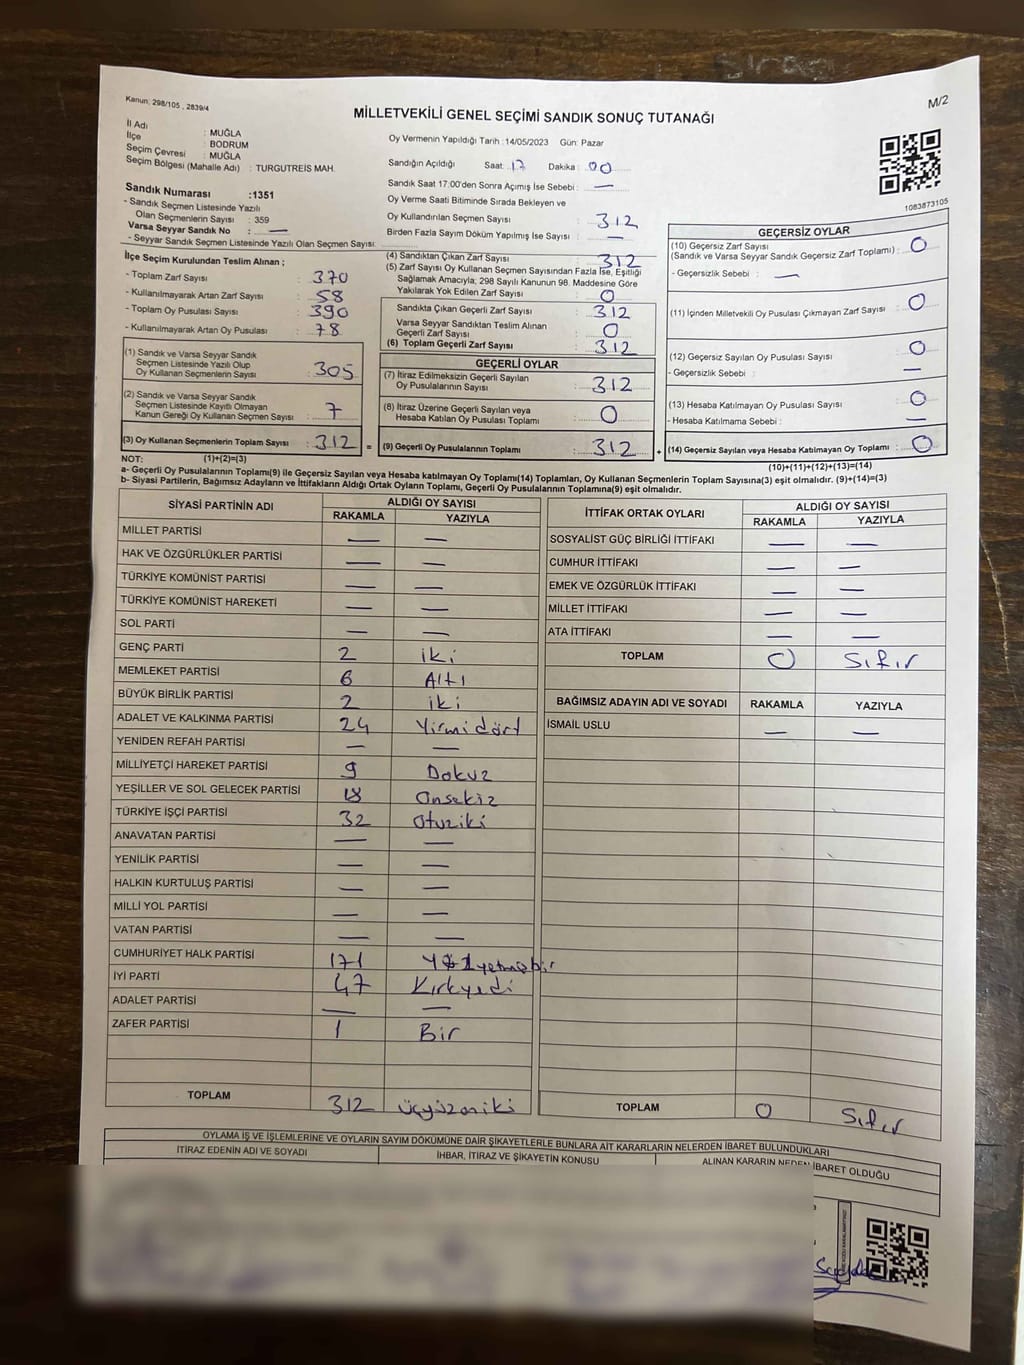 Kanun: 298/105 , 2839/4
M/2
MİLLETVEKİLİ GENEL SEÇİMİ SANDIK SONUÇ TUTANAĞI
İl Adı : MUĞLA
İlçe : BODRUM
Seçim Çevresi : MUĞLA
Seçim Bölgesi (Mahalle Adı) : TURGUTREİS MAH.
Sandık Numarası :1351
- Sandık Seçmen Listesinde Yazılı
Olan Seçmenlerin Sayısı : 359
Varsa Seyyar Sandık No : —
- Seyyar Sandık Seçmen Listesinde Yazılı Olan Seçmen Sayısı:
Oy Vermenin Yapıldığı Tarih :14/05/2023 Gün: Pazar
Sandığın Açıldığı Saat: 17 Dakika: 00
Sandık Saat 17:00'den Sonra Açımış İse Sebebi : —
Oy Verme Saati Bitiminde Sırada Bekleyen ve
Oy Kullandırılan Seçmen Sayısı : 312
Birden Fazla Sayım Döküm Yapılmış İse Sayısı : —
1083873105
İlçe Seçim Kurulundan Teslim Alınan ;
- Toplam Zarf Sayısı : 370
- Kullanılmayarak Artan Zarf Sayısı : 58
- Toplam Oy Pusulası Sayısı : 390
- Kullanılmayarak Artan Oy Pusulası : 78
(1) Sandık ve Varsa Seyyar Sandık
Seçmen Listesinde Yazılı Olup
Oy Kullanan Seçmenlerin Sayısı : 305
(2) Sandık ve Varsa Seyyar Sandık
Seçmen Listesinde Kayıtlı Olmayan
Kanun Gereği Oy Kullanan Seçmen Sayısı : 7
(3) Oy Kullanan Seçmenlerin Toplam Sayısı : 312 =
(4) Sandıktan Çıkan Zarf Sayısı : 312
(5) Zarf Sayısı Oy Kullanan Seçmen Sayısından Fazla İse, Eşitliği
Sağlamak Amacıyla, 298 Sayılı Kanunun 98. Maddesine Göre
Yakılarak Yok Edilen Zarf Sayısı : 0
Sandıkta Çıkan Geçerli Zarf Sayısı : 312
Varsa Seyyar Sandıktan Teslim Alınan
Geçerli Zarf Sayısı : 0
(6) Toplam Geçerli Zarf Sayısı : 312
GEÇERLİ OYLAR
(7) İtiraz Edilmeksizin Geçerli Sayılan
Oy Pusulalarının Sayısı : 312
(8) İtiraz Üzerine Geçerli Sayılan veya
Hesaba Katılan Oy Pusulası Toplamı : 0
(9) Geçerli Oy Pusulalarının Toplamı : 312 +
GEÇERSİZ OYLAR
(10) Geçersiz Zarf Sayısı
(Sandık ve Varsa Seyyar Sandık Geçersiz Zarf Toplamı) : 0
- Geçersizlik Sebebi : —
(11) İçinden Milletvekili Oy Pusulası Çıkmayan Zarf Sayısı : 0
(12) Geçersiz Sayılan Oy Pusulası Sayısı : 0
- Geçersizlik Sebebi : —
(13) Hesaba Katılmayan Oy Pusulası Sayısı : 0
- Hesaba Katılmama Sebebi : —
(14) Geçersiz Sayılan veya Hesaba Katılmayan Oy Toplamı : 0
NOT: (1)+(2)=(3)
(10)+(11)+(12)+(13)=(14)
a- Geçerli Oy Pusulalarının Toplamı(9) ile Geçersiz Sayılan veya Hesaba katılmayan Oy Toplamı(14) Toplamları, Oy Kullanan Seçmenlerin Toplam Sayısına(3) eşit olmalıdır. (9)+(14)=(3)
b- Siyasi Partilerin, Bağımsız Adayların ve İttifakların Aldığı Ortak Oyların Toplamı, Geçerli Oy Pusulalarının Toplamına(9) eşit olmalıdır.
SİYASİ PARTİNİN ADI ALDIĞI OY SAYISI
RAKAMLA YAZIYLA
MİLLET PARTİSİ — —
HAK VE ÖZGÜRLÜKLER PARTİSİ — —
TÜRKİYE KOMÜNİST PARTİSİ — —
TÜRKİYE KOMÜNİST HAREKETİ — —
SOL PARTİ — —
GENÇ PARTİ 2 iki
MEMLEKET PARTİSİ 6 Altı
BÜYÜK BİRLİK PARTİSİ 2 iki
ADALET VE KALKINMA PARTİSİ 24 Yirmidört
YENİDEN REFAH PARTİSİ — —
MİLLİYETÇİ HAREKET PARTİSİ 9 Dokuz
YEŞİLLER VE SOL GELECEK PARTİSİ 18 Onsekiz
TÜRKİYE İŞÇİ PARTİSİ 32 Otuziki
ANAVATAN PARTİSİ — —
YENİLİK PARTİSİ — —
HALKIN KURTULUŞ PARTİSİ — —
MİLLİ YOL PARTİSİ — —
VATAN PARTİSİ — —
CUMHURİYET HALK PARTİSİ 171
İYİ PARTİ 47 Kırkyedi
ADALET PARTİSİ — —
ZAFER PARTİSİ 1 Bir
TOPLAM 312 üçyüzoniki
İTTİFAK ORTAK OYLARI ALDIĞI OY SAYISI
RAKAMLA YAZIYLA
SOSYALİST GÜÇ BİRLİĞİ İTTİFAKI — —
CUMHUR İTTİFAKI — —
EMEK VE ÖZGÜRLÜK İTTİFAKI — —
MİLLET İTTİFAKI — —
ATA İTTİFAKI — —
TOPLAM 0 Sıfır
BAĞIMSIZ ADAYIN ADI VE SOYADI RAKAMLA YAZIYLA
İSMAİL USLU — —
TOPLAM 0 Sıfır
OYLAMA İŞ VE İŞLEMLERİNE VE OYLARIN SAYIM DÖKÜMÜNE DAİR ŞİKAYETLERLE BUNLARA AİT KARARLARIN NELERDEN İBARET BULUNDUKLARI
İTİRAZ EDENİN ADI VE SOYADI İHBAR, İTİRAZ VE ŞİKAYETİN KONUSU ALINAN KARARIN NEDEN İBARET OLDUĞU